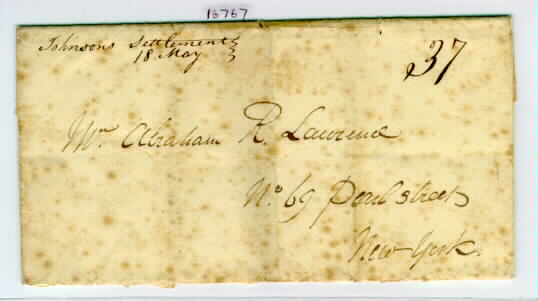 16767
Johnsons Settlement
18 May
37
Mr Abraham R. Lawrence
No. 69 Pearl street
New York.